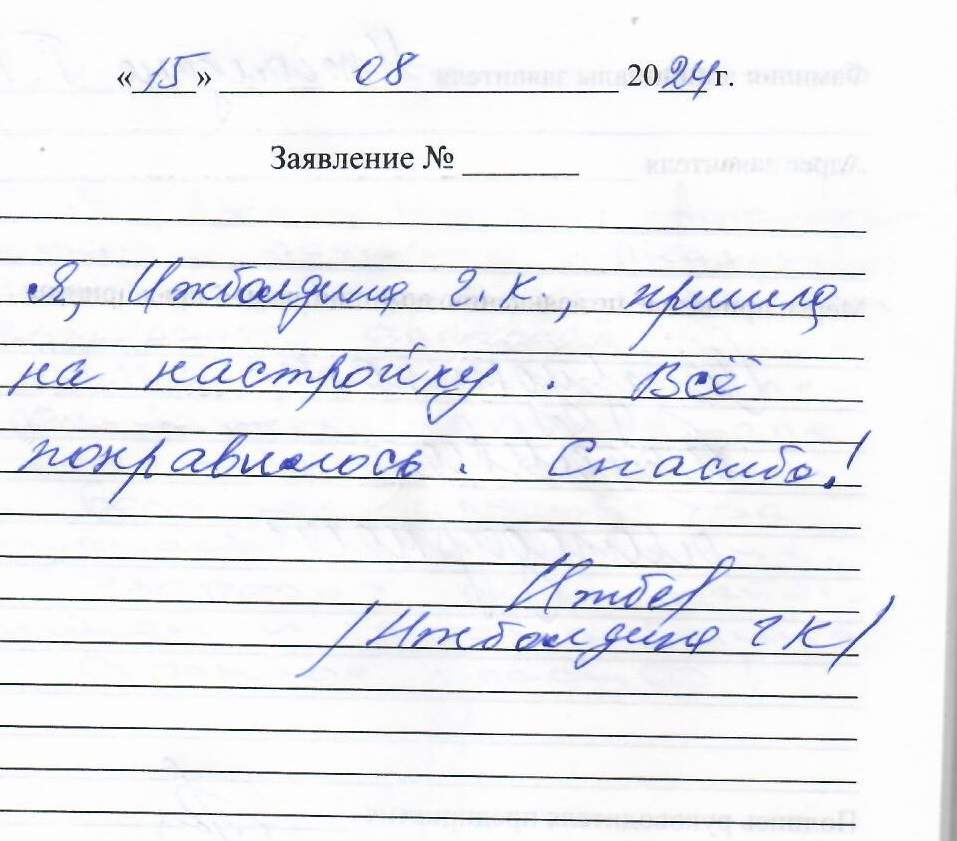 «15» 08 2024 г.
Заявление №
Я, Ижболдина Г.К, пришла
на настройку. Всё
понравилось. Спасибо!
Ижбол
/Ижболдина Г К/